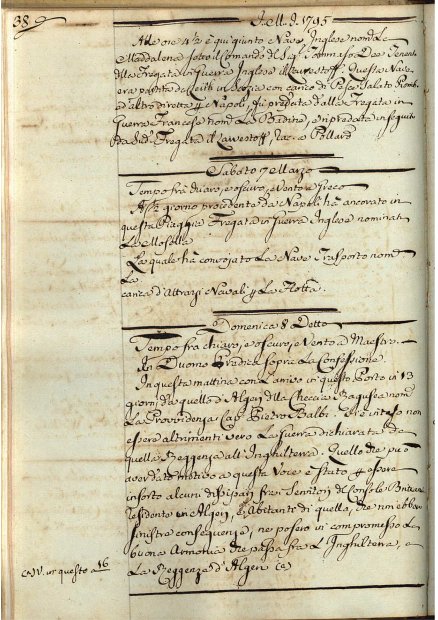 38
J.M.J. 1795
Alle ore 4½ è qui giunto Nave Inglese nom.ta Le
Maddalena sotto il comando del Sig.r Tommaso Tenen.
della Fregata in Guerra Inglese il Lawestoff. Questa Nave
era partita da Leith in Scozia con carico di Pesce Salato Piomb.
ed altro diretta p. Napoli, fù predata dalla Fregata in
Guerra Francese nom.ta La Badine, e ripredata in seguito
da Sud.a Fregata il Lawestoff, Rac. a Pollard
Sabato 7 Marzo
Tempo frà chiaro, e oscuro, e Vento a Greco
A giorno procedente da Napoli hà ancorato in
questa Piaggia Fregata in Guerra Inglese nominat.
La Mosella
La quale hà convojato La Nave Trasporto nom.
La
carica d'Attrazzi Navali p. La Flotta.
Domenica 8 Detto
Tempo fra chiaro, e oscuro, e Vento a Maestro.
In Duomo Predica sopra La Confessione.
In questa mattina con L'arrivo in questo Porto in 13
giorni da quello d'Algeri della Checcia Ragusea nom.
La Providenza Cap. Pietro Balbi si è inteso non
essere altrimenti vero La Guerra dichiarata da
quella Reggenza all'Inghilterra. Quello che può
aver dato motivo a questa Voce è stato p. essere
insorto alcuni dissapari fra i Servitori del Console Britan.
Residente in Algeri, e Abitante di quella, che non ebbero
sinistre conseguenze, ne posero in compromesso La
buona Armonia che passa fra L'Inghilterra, e
La Reggenza d'Algeri (a)
(a) V. in questo a 16